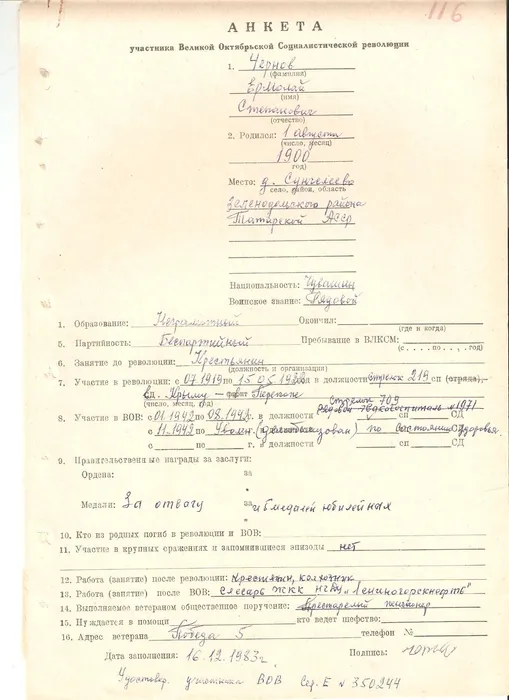 116
АНКЕТА
участника Великой Октябрьской Социалистической революции
1. Чернов
(фамилия)
Ермолай
(имя)
Степанович
(отчество)
2. Родился: 1 августа
(число, месяц)
1900
год)
Место: д. Сунчелеево
село, район, область
Зеленодольского района
Татарской АССР
Национальность: Чувашин
Воинское звание: Рядовой
1. Образование: Неграмотный Окончил:
(где и когда)
5. Партийность: Беспартийный Пребывание в ВЛКСМ:
(с . . . , по . . , год)
6. Занятие до революции: Крестьянин
(должность и организация)
7. Участие в революции: с 07.1919 по 15.05.1920 в должности стрелок 219 сп (отряда),
Крыму — Перекоп
(число, месяц, год)
стрелок 709
8. Участие в ВОВ: с 01.1942 по 08.1942 в должности СД
с 11.1942 Уволен (демобилизован) по состоянию здоровья
с по г. в должности сп СД
9. Правительственные награды за заслуги:
Ордена: за
Медали: За отвагу за и 6 медалей юбилейных
10. Кто из родных погиб в революции и ВОВ:
11. Участие в крупных сражениях и запомнившиеся эпизоды нет
12. Работа (занятие) после революции: крестьянин, колхозник
13. Работа (занятие) после ВОВ: Слесарь ЖКК НГДУ „Лениногорскнефть"
14. Выполняемое ветераном общественное поручение: Престарелый пенсионер
15. Нуждается в помощи кто ведет шефство:
16. Адрес ветерана Победа 5 телефон №
Дата заполнения: 16.12.1983г. Подпись:
Удостовер. участника ВОВ Сер. Е № 350244